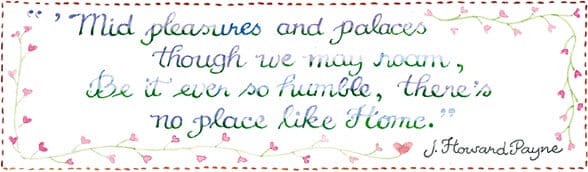 “ ’Mid pleasures and palaces
though we may roam,
Be it ever so humble, there's
no place like Home.”
J. Howard Payne